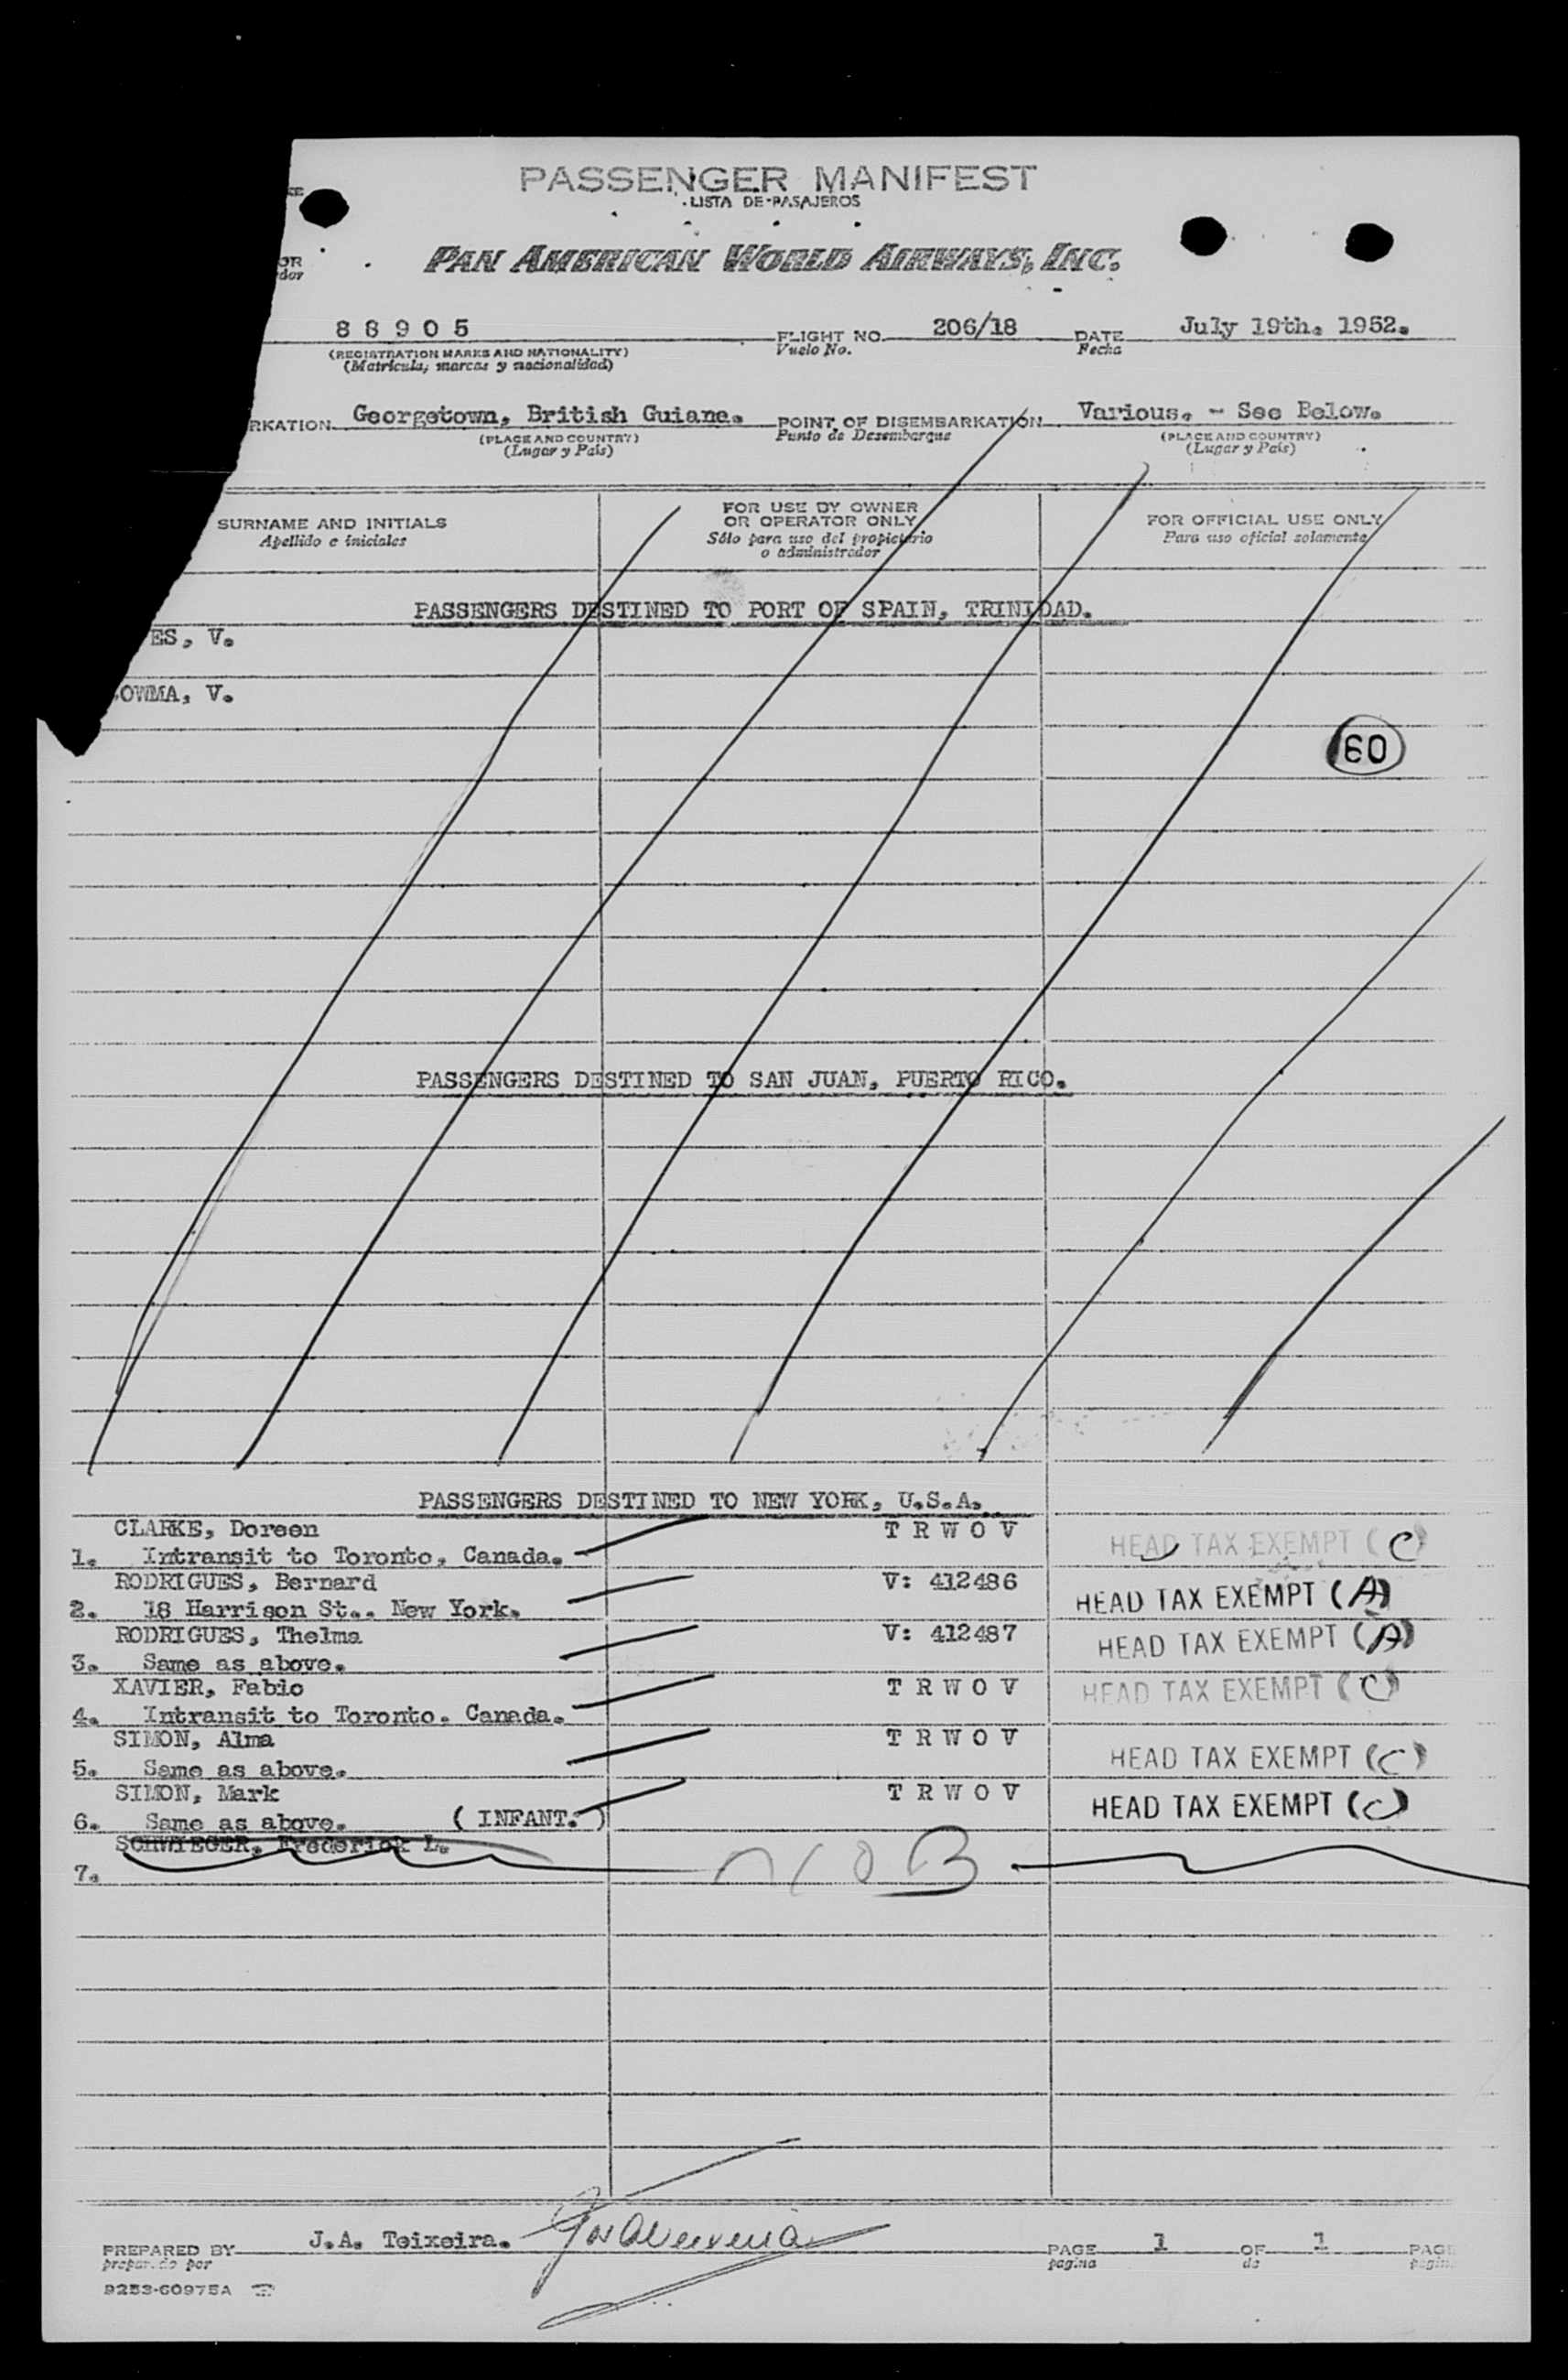 PASSENGER MANIFEST
LISTA DE PASAJEROS
OR
dor
PAN AMERICAN WORLD AIRWAYS, INC.
88905 FLIGHT NO. 206/18 DATE July 19th. 1952.
(REGISTRATION MARKS AND NATIONALITY) Vuelo No. Fecha
(Matrícula, marcas y nacionalidad)
RKATION Georgetown, British Guiana. POINT OF DISEMBARKATION Various. - See Below.
(PLACE AND COUNTRY) Punto de Desembarque (PLACE AND COUNTRY)
(Lugar y País) (Lugar y País)
SURNAME AND INITIALS FOR USE BY OWNER OR OPERATOR ONLY FOR OFFICIAL USE ONLY
Apellido e iniciales Sólo para uso del propietario o administrador Para uso oficial solamente
PASSENGERS DESTINED TO PORT OF SPAIN, TRINIDAD.
ES, V.
OWMA, V.
60
PASSENGERS DESTINED TO SAN JUAN, PUERTO RICO.
PASSENGERS DESTINED TO NEW YORK, U.S.A.
CLARKE, Doreen T R W O V
1. Intransit to Toronto, Canada. HEAD TAX EXEMPT (C)
RODRIGUES, Bernard V: 412486
2. 18 Harrison St., New York. HEAD TAX EXEMPT (A)
RODRIGUES, Thelma V: 412487
3. Same as above. HEAD TAX EXEMPT (A)
XAVIER, Fabio T R W O V
4. Intransit to Toronto. Canada. HEAD TAX EXEMPT (C)
SIMON, Alma T R W O V
5. Same as above. HEAD TAX EXEMPT (C)
SIMON, Mark T R W O V
6. Same as above. (INFANT.) HEAD TAX EXEMPT (C)
SCHWIEGER, Frederick L.
7.
PREPARED BY J.A. Teixeira. PAGE 1 OF 1 PAG
preparado por pagina de pagin
9253-60975A